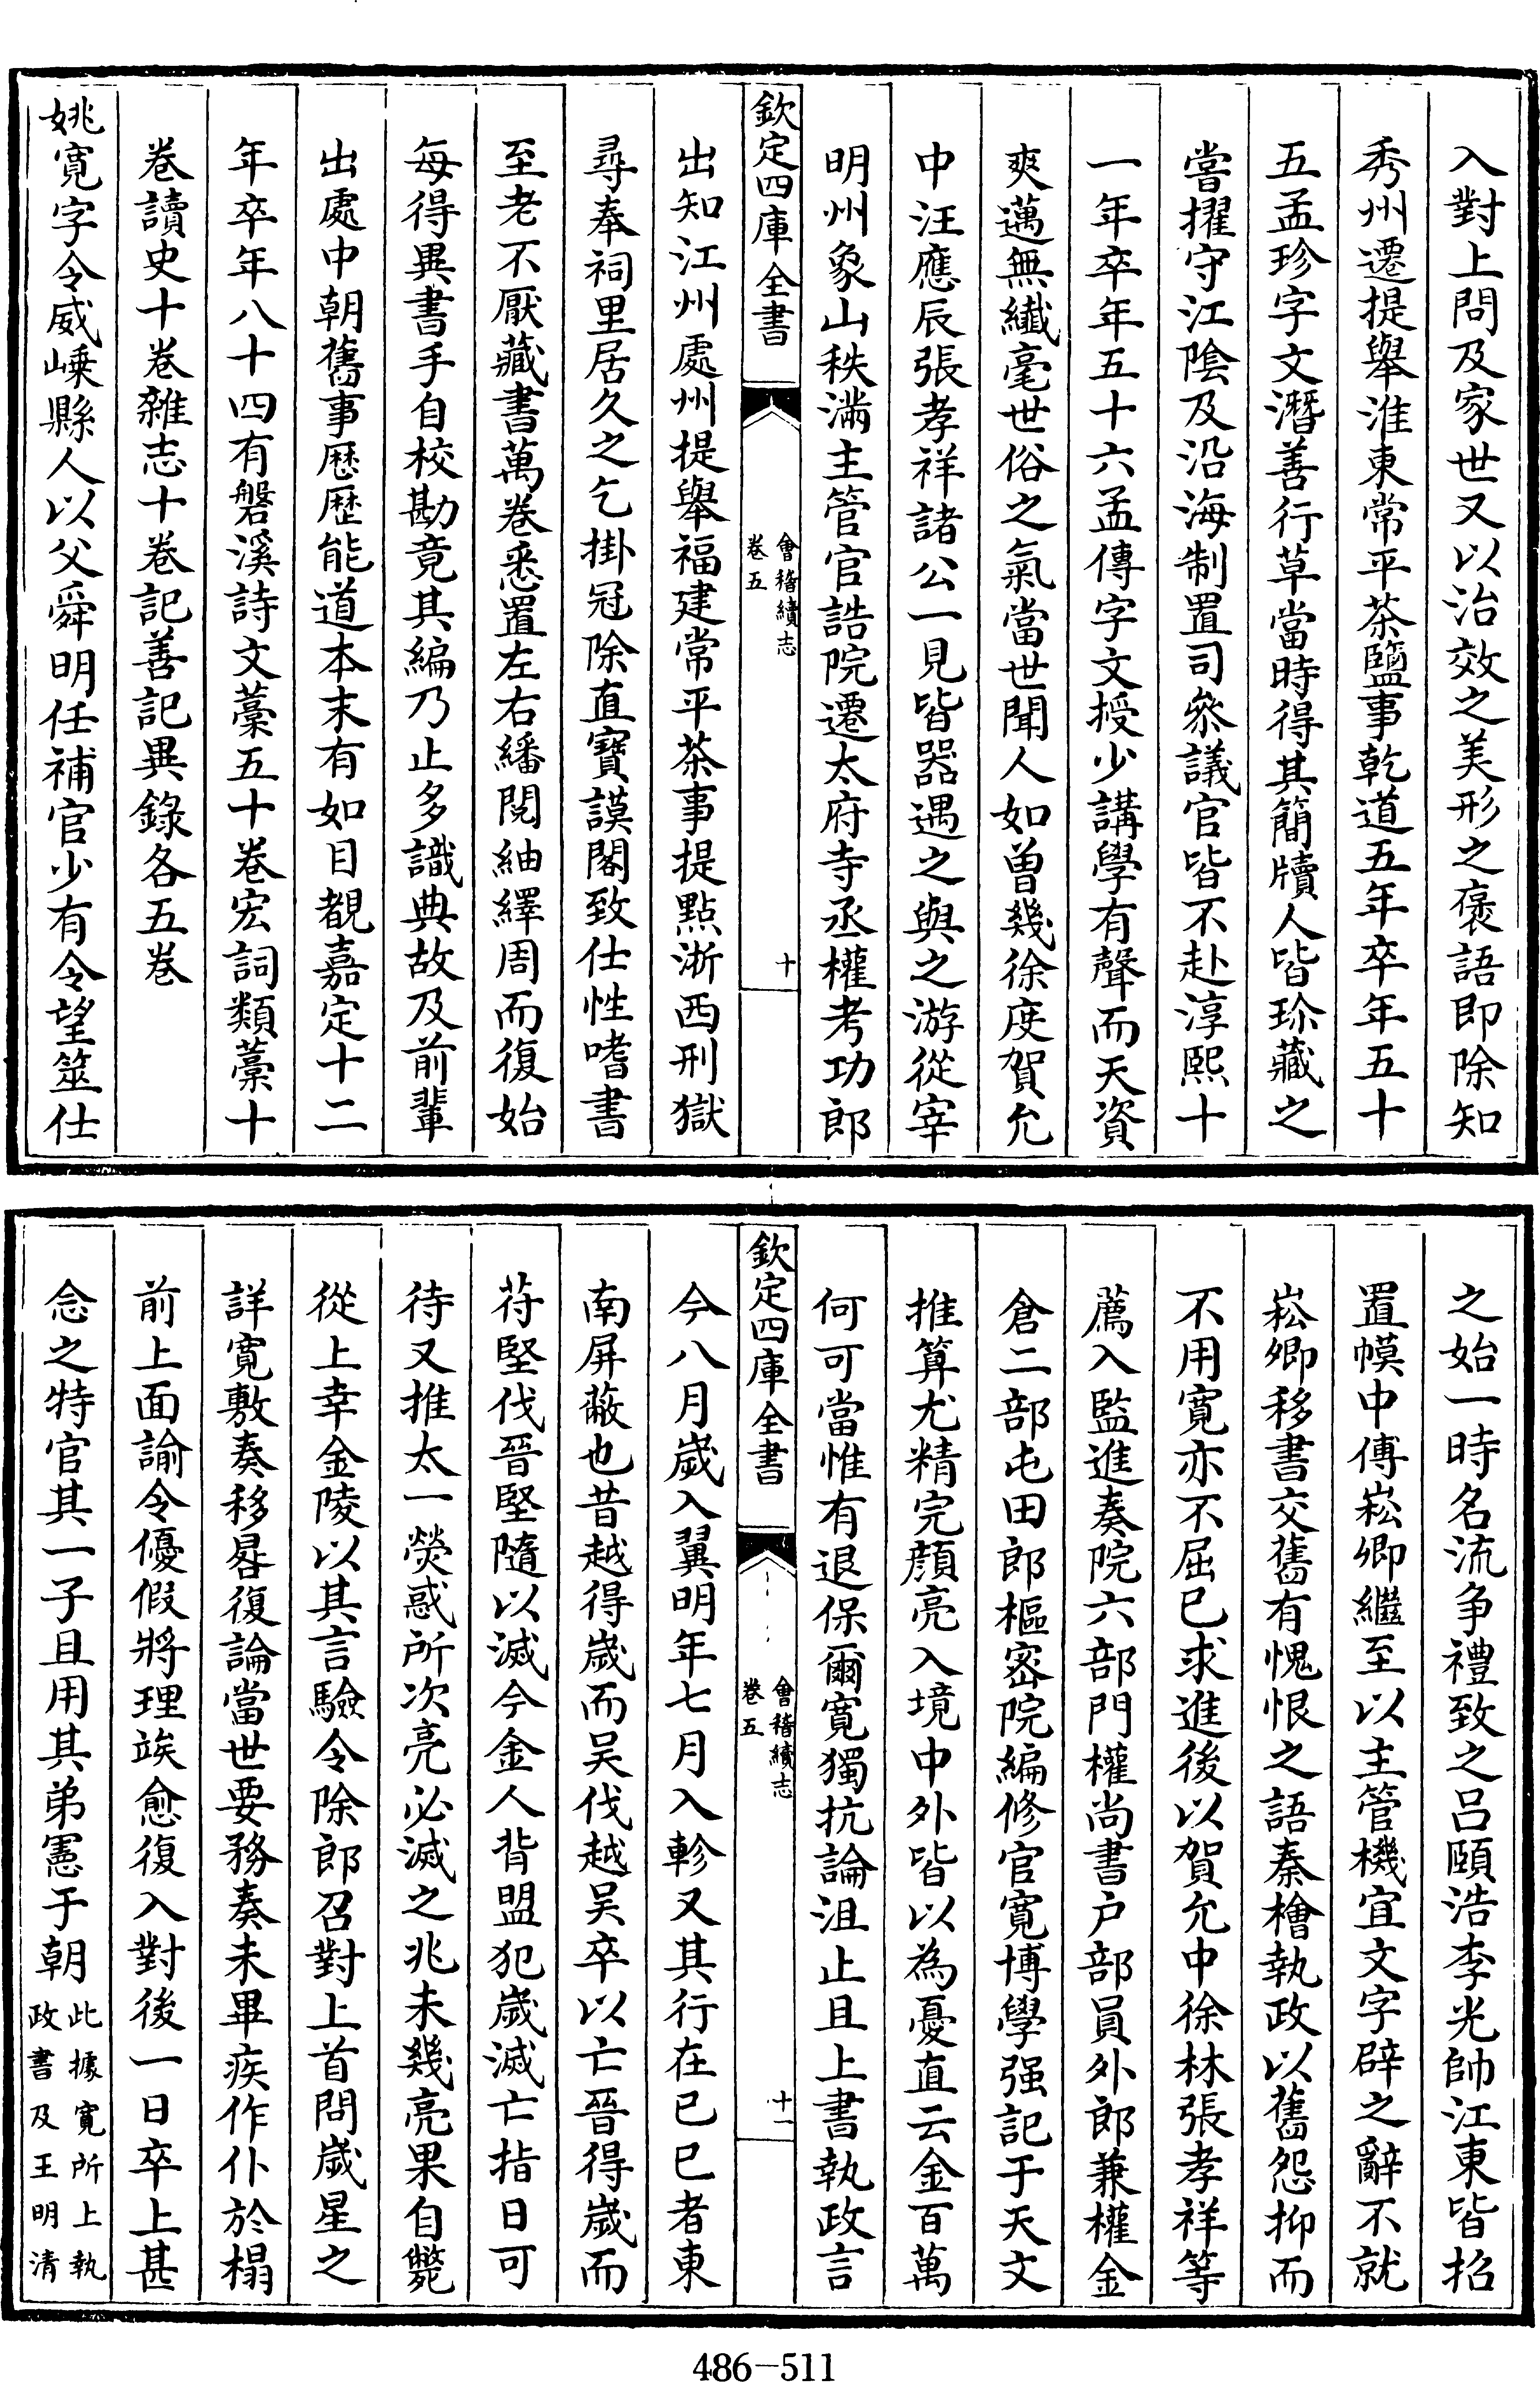 入對上問及家世又以治效之美形之褒語即除知
秀州遷提舉淮東常平茶鹽事乾道五年卒年五十
五孟珍字文潛善行草當時得其簡牘人皆珍藏之
嘗擢守江陰及沿海制置司叅議官皆不赴淳熙十
一年卒年五十六孟傳字文授少講學有聲而天資
爽邁無纎毫世俗之氣當世聞人如曽幾徐度賀允
中汪應辰張孝祥諸公一見皆器遇之與之游從宰
明州象山秩滿主管官誥院遷太府寺丞權考功郎
欽定四庫全書
會稽續志
卷五
十
出知江州處州提舉福建常平茶事提點浙西刑獄
尋奉祠里居久之乞掛冠除直寶謨閣致仕性嗜書
至老不厭藏書萬卷悉置左右繙閱紬繹周而復始
每得異書手自校勘竟其編乃止多識典故及前輩
出處中朝舊事歴歴能道本末有如目覩嘉定十二
年卒年八十四有磐溪詩文藁五十卷宏詞類藁十
卷讀史十卷雜志十卷記善記異錄各五巻
姚寛字令威嵊縣人以父舜明任補官少有令望筮仕
之始一時名流争禮致之吕頤浩李光帥江東皆招
置幙中傅崧卿繼至以主管機宜文字辟之辭不就
崧卿移書交舊有愧恨之語秦檜執政以舊怨抑而
不用寛亦不屈已求進後以賀允中徐林張孝祥等
薦入監進奏院六部門權尚書户部員外郎兼權金
倉二部屯田郎樞宻院編修官寛博學强記于天文
推算尤精完顔亮入境中外皆以為憂直云金百萬
何可當惟有退保爾寛獨抗論沮止且上書執政言
欽定四庫全書
會稽續志
卷五
十一
今八月嵗入翼明年七月入軫又其行在已巳者東
南屏蔽也昔越得嵗而吴伐越吴卒以亡晉得嵗而
苻堅伐晉堅隨以滅今金人背盟犯嵗滅亡指日可
待又推太一熒惑所次亮必滅之兆未幾亮果自斃
從上幸金陵以其言驗令除郎召對上首問嵗星之
詳寛敷奏移晷復論當世要務奏未畢疾作仆於榻
前上面諭令優假將理竢愈復入對後一日卒上甚
念之特官其一子且用其弟憲于朝此據寛所上執
政書及王明清
486-511